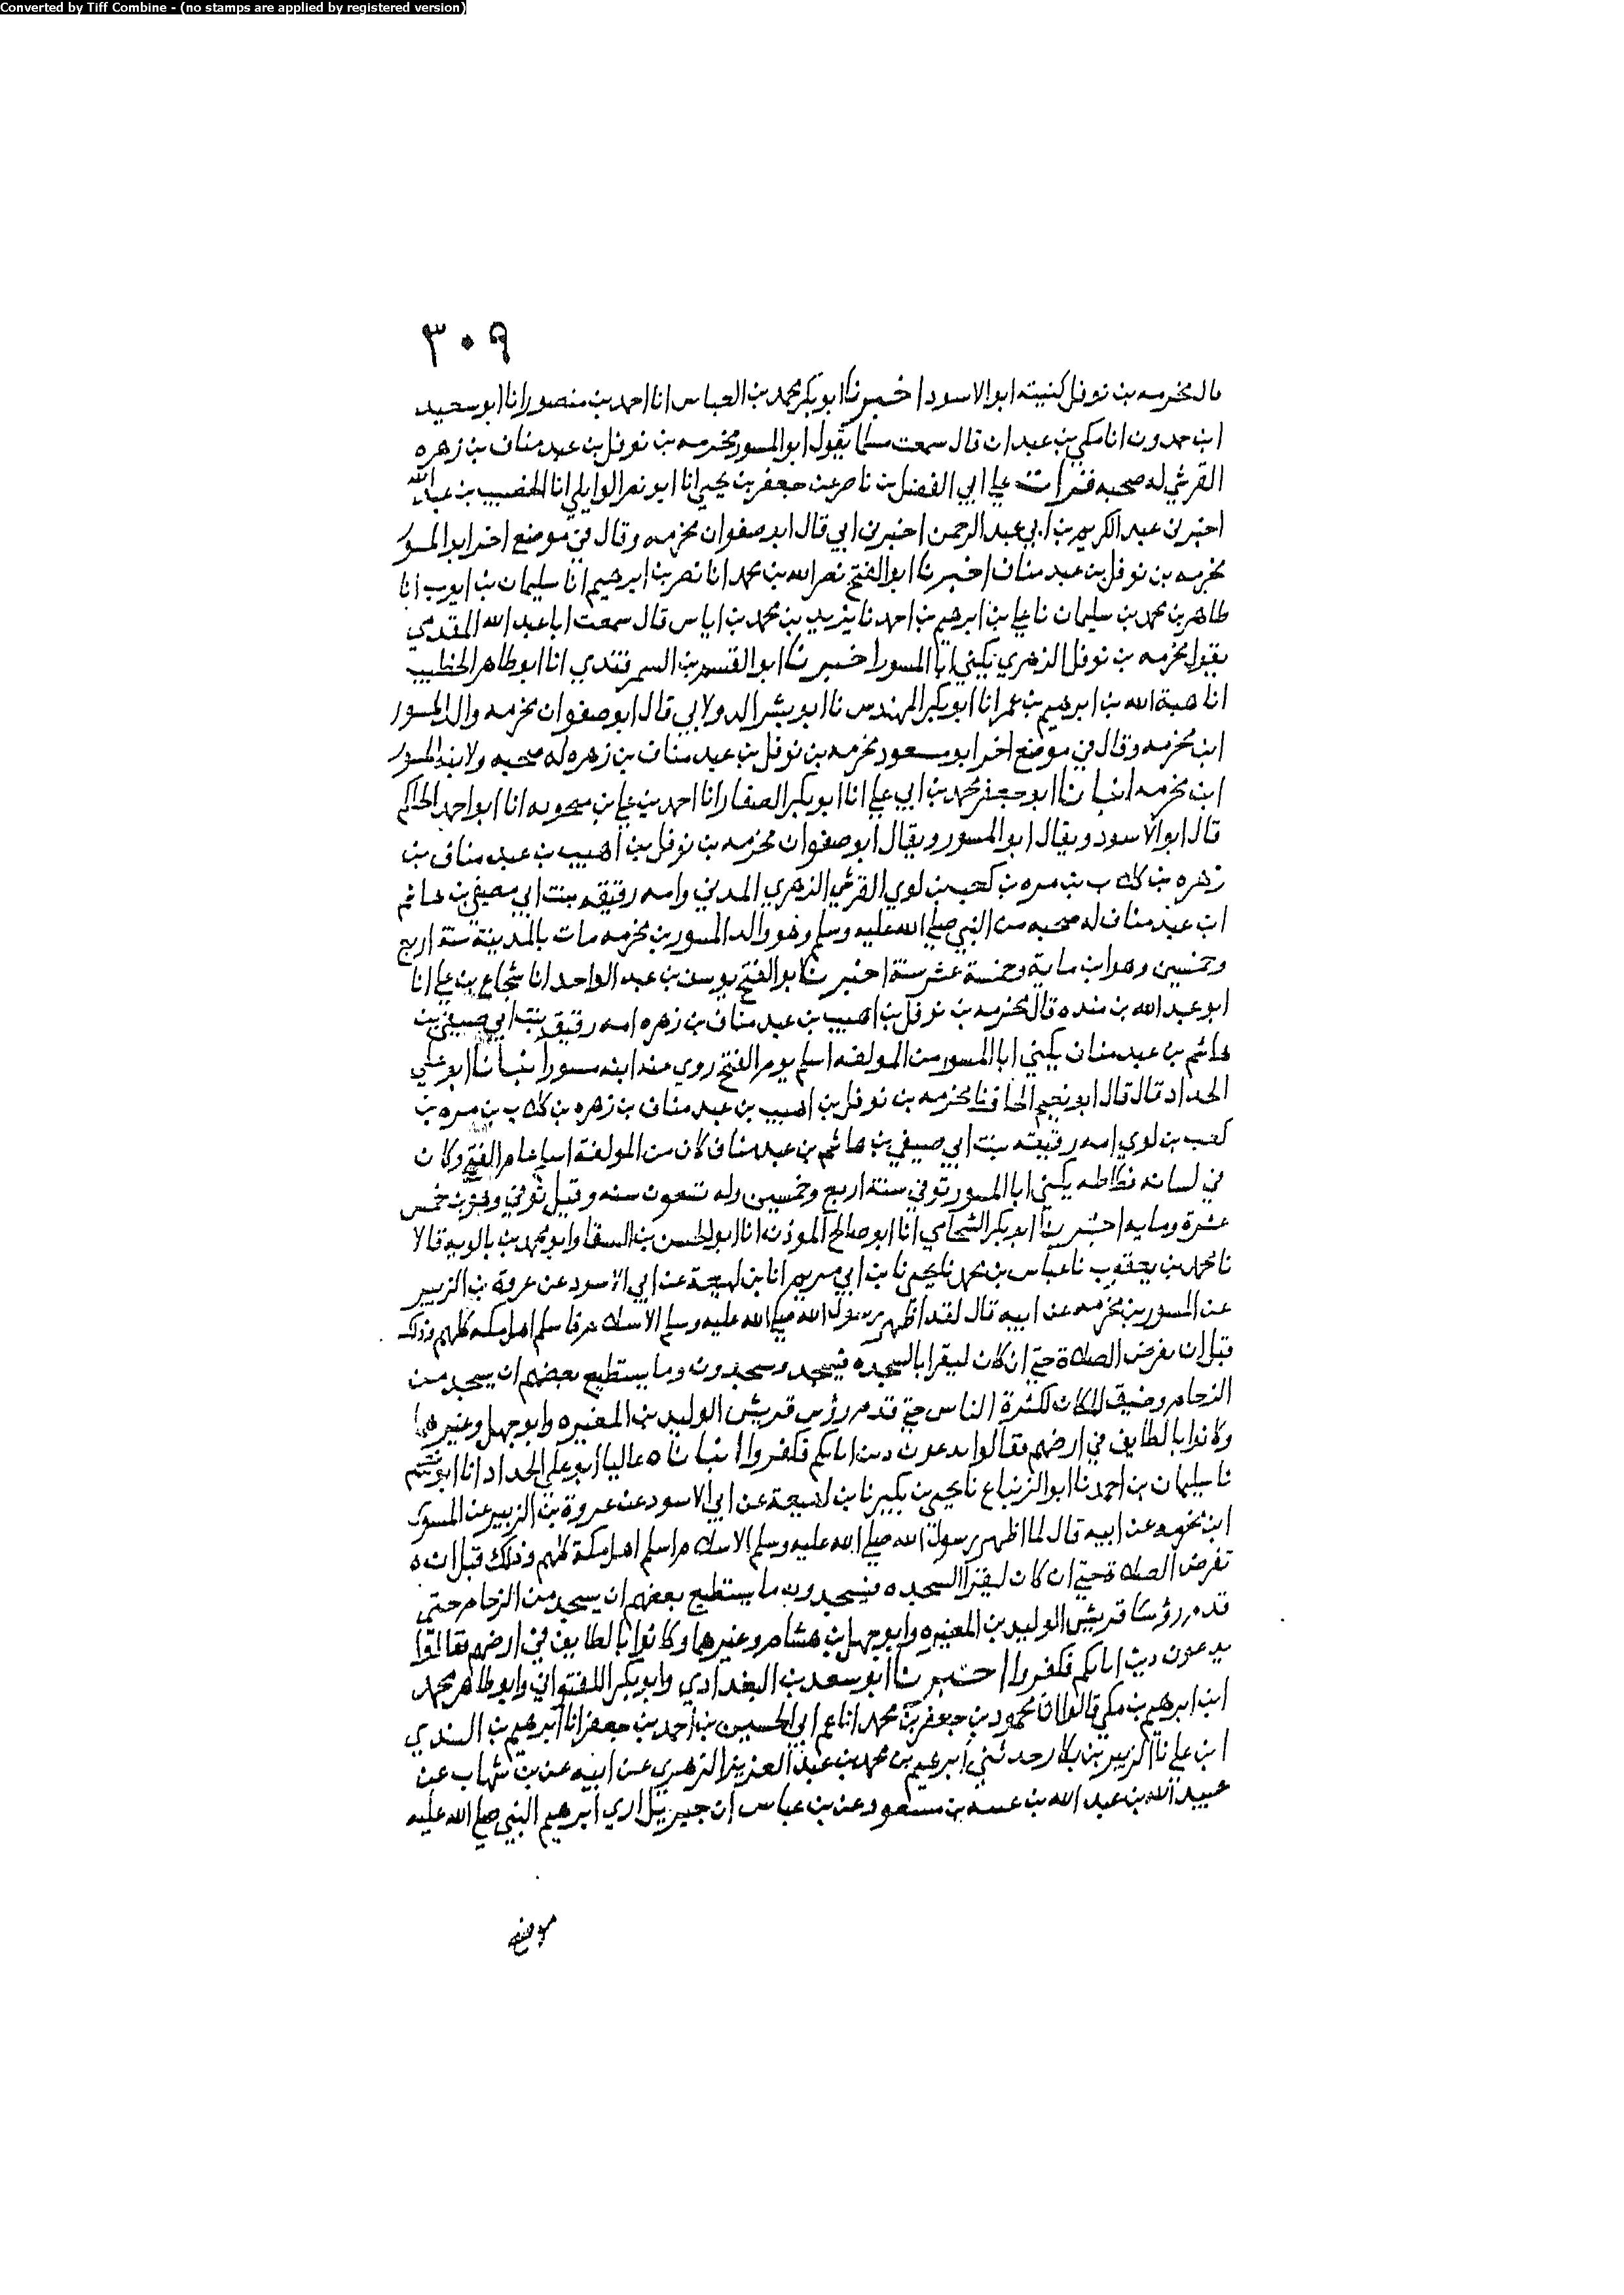 Converted by Tiff Combine - (no stamps are applied by registered version)
٣٠٩
قال مخرمه بن نوفل كنيته ابو الاسود اخبرنا ابو بكر محمد بن العباس انا احمد بن منصور انا ابو سعيد
ابن حمدون انا مكي بن عبدان قال سمعت مسلما يقول ابو المسور مخرمه بن نوفل بن عبد مناف بن زهره
القرشي له صحبه قرات علي ابي الفضل بن ناصر عن جعفر بن يحيي انا ابو نصر الوايلي انا الخصيب بن عبد الله
اخبرني عبد الكريم بن ابي عبد الرحمن اخبرني ابي قال ابو صفوان مخرمه وقال في موضع اخر ابو المسور
مخرمه بن نوفل بن عبد مناف اخبرنا ابو الفتح نصر الله بن محمد انا نصر بن ابرهيم انا سليمان بن ايوب انا
طاهر بن محمد بن سليمان نا علي بن ابرهيم بن احمد نا يزيد بن محمد بن اياس قال سمعت ابا عبد الله المقدمي
يقول مخرمه بن نوفل الزهري يكني ابا المسور اخبرنا ابو القسم بن السمرقندي انا ابو طاهر الخطيب
انا هبة الله بن ابرهيم بن عمر انا ابو بكر المهندس نا ابو بشر الدولابي قال ابو صفوان مخرمه والد المسور
ابن مخرمه وقال في موضع اخر ابو مسعود مخرمه بن نوفل بن عبد مناف بن زهره له صحبه ولابنه المسور
ابن مخرمه انبانا ابو جعفر محمد بن ابي علي انا ابو بكر الصفار انا احمد بن علي بن منجويه انا ابو احمد الحاكم
قال ابو الاسود ويقال ابو المسور ويقال ابو صفوان مخرمه بن نوفل بن اهيب بن عبد مناف بن
زهره بن كلاب بن مره بن كعب بن لوي القرشي الزهري المدني وامه رقيقه بنت ابي صيفي بن هاشم
ابن عبد مناف له صحبه من النبي صلي الله عليه وسلم وهو والد المسور بن مخرمه مات بالمدينة سنة اربع
وخمسين وهو ابن ماية وخمسة عشر سنة اخبرنا ابو الفتح يوسف بن عبد الواحد انا شجاع بن علي انا
ابو عبد الله بن منده قال مخرمه بن نوفل بن اهيب بن عبد مناف بن زهره امه رقيقه بنت ابي صيفي بن
هاشم بن عبد مناف يكني ابا المسور من المولفه اسلم يوم الفتح روي عنه ابنه مسور انبانا ابو علي
الحداد قال قال ابو نعيم الحافظ مخرمه بن نوفل بن اهيب بن عبد مناف بن زهره بن كلاب بن مره بن
كعب بن لوي امه رقيقه بنت ابي صيفي بن هاشم بن عبد مناف كان من المولفة اسلم عام الفتح وكان
في لسانه فظاظه يكني ابا المسور توفي سنة اربع وخمسين وله تسعون سنه وقيل توفي وهو بن خمس
عشرة ومايه اخبرنا ابو بكر الشحامي انا ابو صالح الموذن انا ابو الحسن بن السقا وابو محمد بن بالويه قالا
نا محمد بن يعقوب نا عباس بن محمد نا يحيي نا بن ابي مريم انا بن لهيعة عن ابي الاسود عن عروة بن الزبير
عن المسور بن مخرمه عن ابيه قال لقد اظهر رسول الله صلي الله عليه وسلم الاسلام فاسلم اهل مكه كلهم وذلك
قبل ان يفرض الصلاة حتي ان كان ليقرا بالسجده فيسجد ويسجدون وما يستطيع بعضهم ان يسجد من
الزحام وضيق المكان لكثرة الناس حتي قدم رؤس قريش الوليد بن المغيره وابو جهل وغيرهما
وكانوا بالطايف في ارضهم فقالوا تدعون دين ابائكم فكفروا انباناه عاليا ابو علي الحداد انا ابو نعيم
نا سليمان بن احمد نا ابو الزنباع نا يحيي بن بكير نا بن لهيعة عن ابي الاسود عن عروة بن الزبير عن المسور
ابن مخرمه عن ابيه قال لما اظهر رسول الله صلي الله عليه وسلم الاسلام اسلم اهل مكة كلهم وذلك قبل ان
تفرض الصلاة حتي ان كان ليقرا السجده فيسجدون ما يستطيع بعضهم ان يسجد من الزحام حتى
قدم رؤسا قريش الوليد بن المغيره وابو جهل بن هشام وغيرهما وكانوا بالطايف في ارضهم فقالوا
تدعون دين ابائكم فكفروا اخبرنا ابو سعد بن البغدادي وابو بكر اللفتواني وابو طاهر محمد
ابن ابرهيم بن مكي قالوا انا محمود بن جعفر بن محمد انا عم ابي الحسين بن احمد بن جعفر انا ابرهيم بن السندي
ابن علي نا الزبير بن بكار حدثني ابرهيم بن محمد بن عبد العزيز الزهري عن ابيه عن بن شهاب عن
عبيد الله بن عبد الله بن عتبه بن مسعود عن بن عباس ان جبريل اري ابرهيم النبي صلي الله عليه
موضع